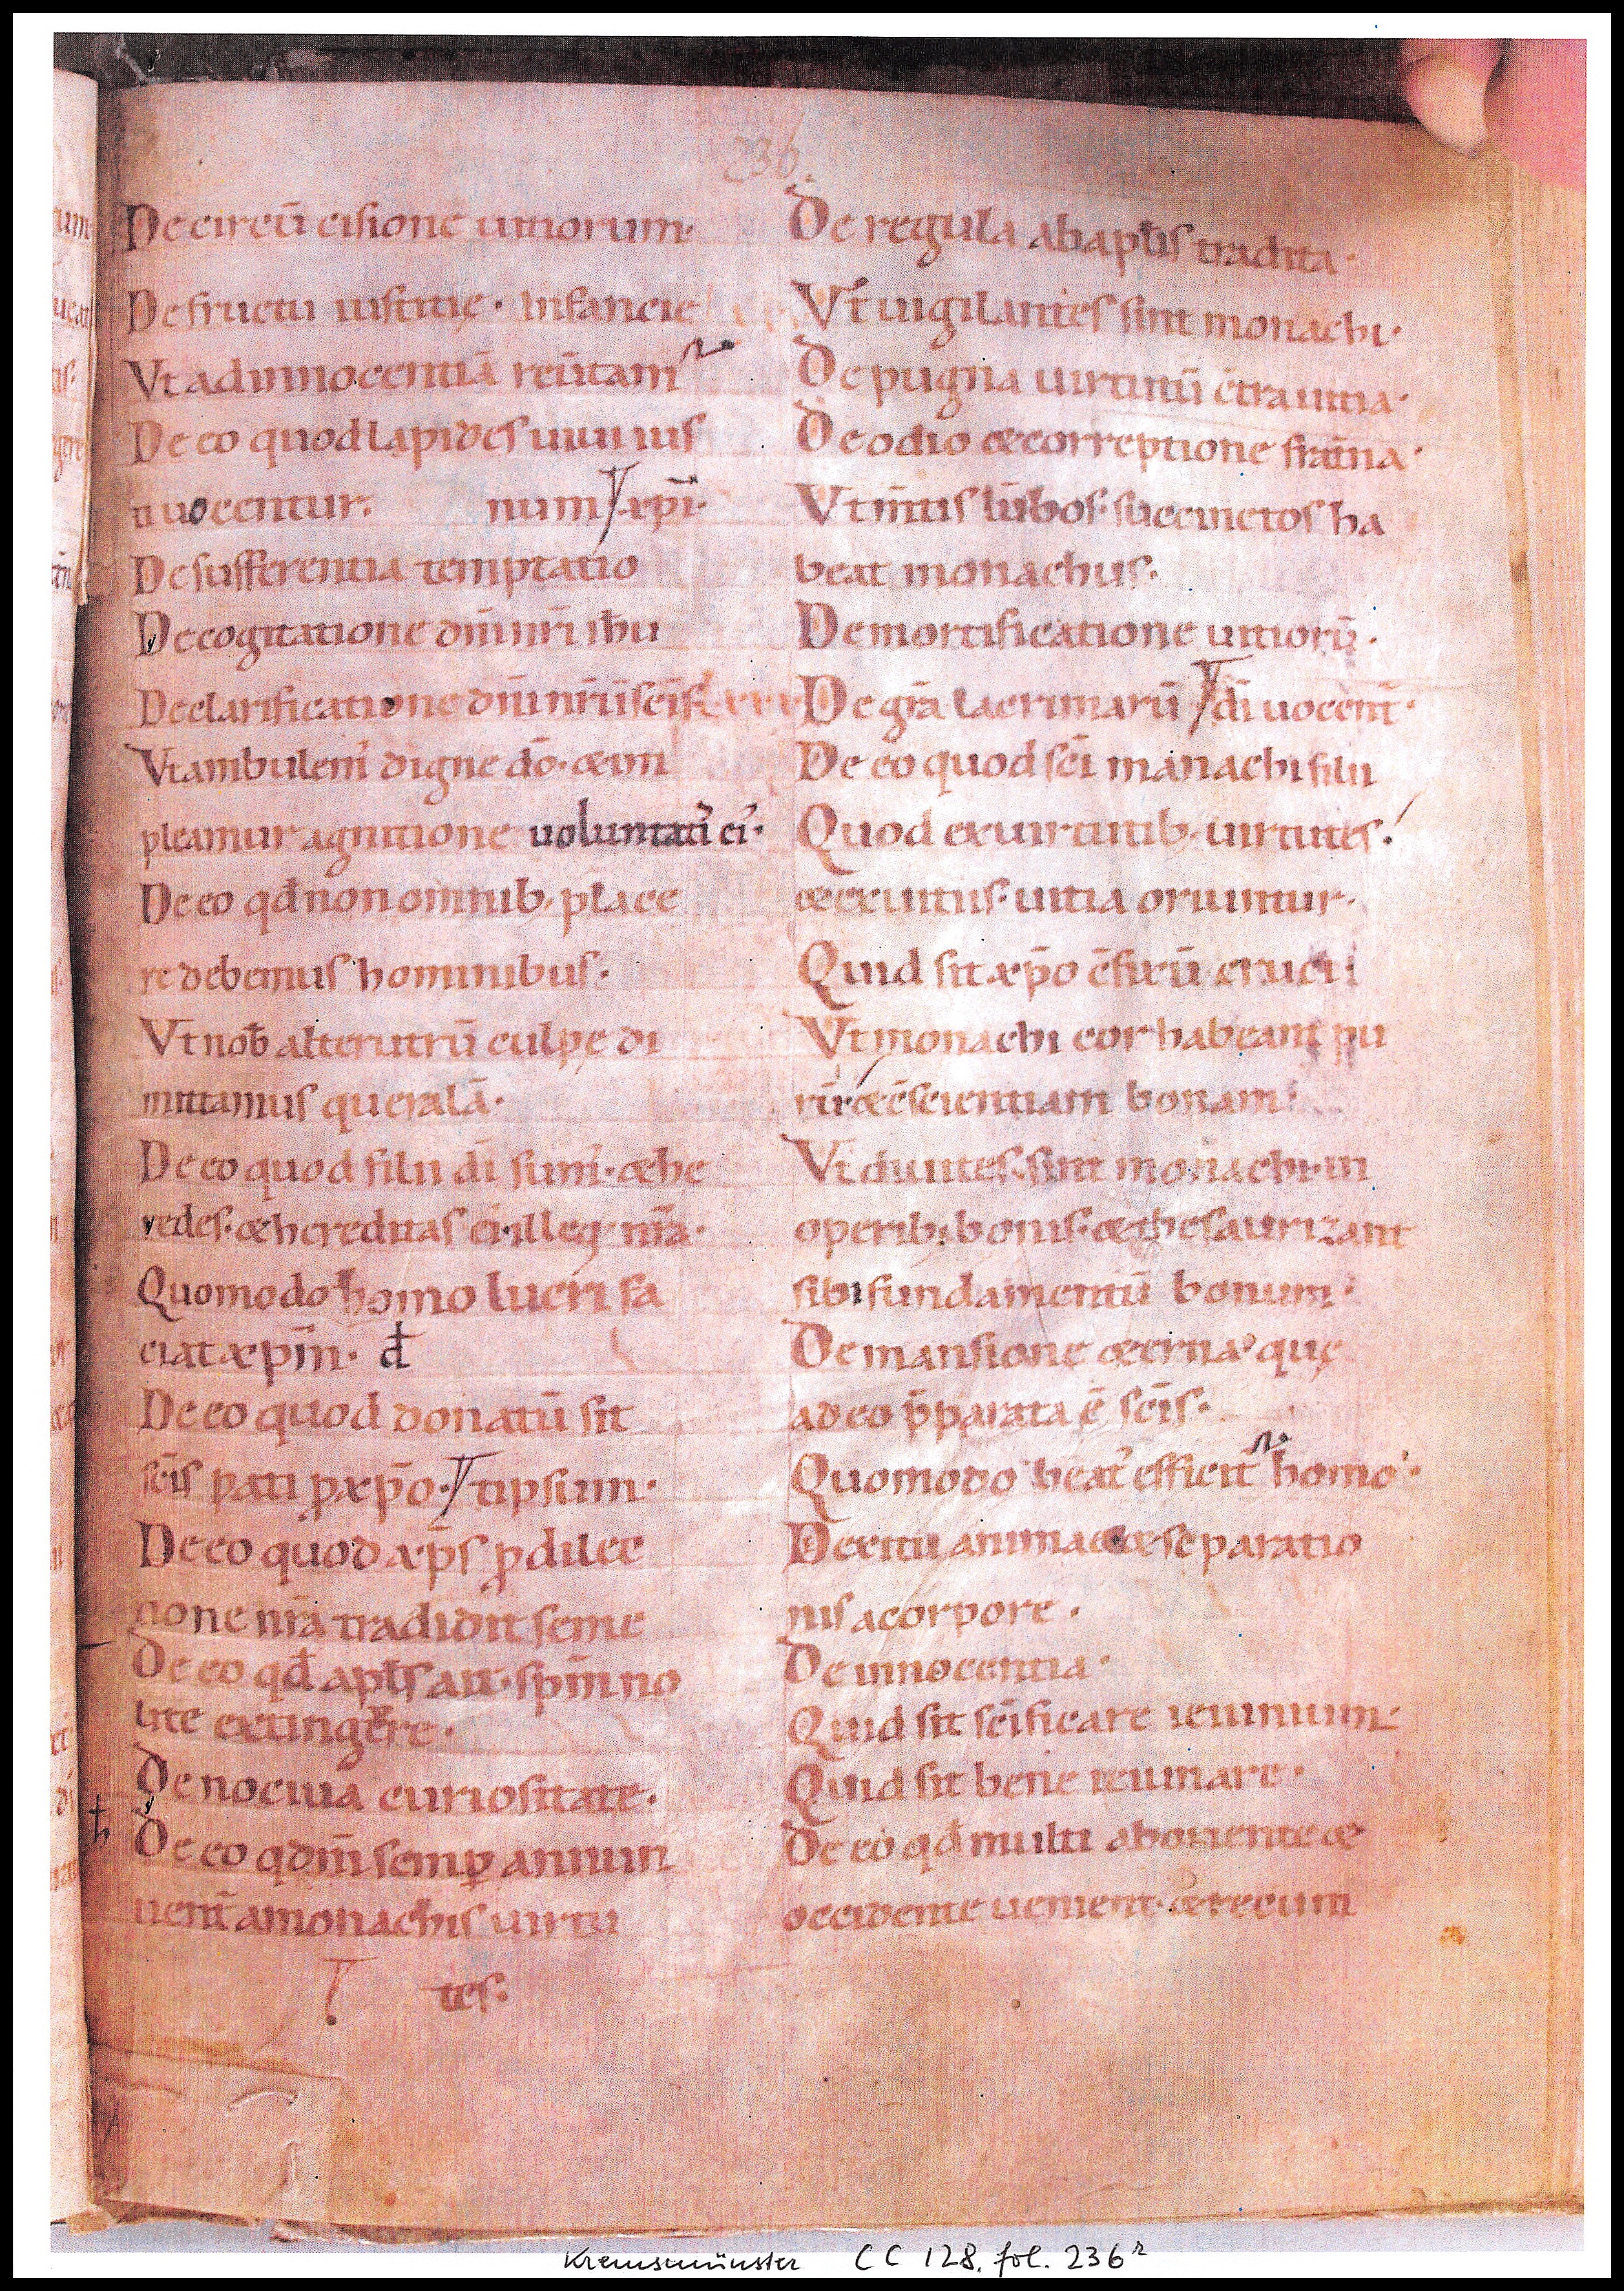 236
De circū cisione uitiorum·
De fructu iustitię· infancie
Vt ad innocentiā reūtam̃
De eo quod lapides uiui ius
n uocentur. num xp̄i·
De sufferentia temptatio
De cogitatione dn̄i nr̄i ih̄u
De clarificatione dn̄i nr̄i
Vt ambulem̄ digne dō· & im
pleamur agnitione uoluntati᷒ ei᷒·
De eo qđ non omnib; place
re debemus hominibus·
Vt nob̄ alterutrū culpę di
mittamus querelā·
De eo quod filii dī sum᷒· & he
redes· & hereditas ei᷒ illeq; nr̄a·
Quomodo homo lucri fa
ciat xp̄m· đ
De eo quod donatū sit
sc̄is pati ꝓ xp̄o· tipsum·
De eo quod xp̄s ꝓ dilec
tione nr̄a tradidit seme
De eo qđ apl̄s ait· sp̄m no
lite extingere·
De nociua curiositate·
De eo q dn̄m semꝑ annun
uenīt a monachis uirtu
tes·
De regula ab apl̄is tradita·
Vt uigilantes sint monachi·
De pugna uirtutū c̄tra uitia·
De odio & correptione frat̄na·
Vt m̄tis lūbos succinctos ha
beat monachus·
De mortificatione uitiorū·
De gr̄a lacrimarū dī uocent̄·
De eo quod sc̄i manachi filii
Quod ex uirtutib; uirtutes·
& ex uitiis· uitia oriuntur·
Quid sit xp̄o c̄fixū cruci·
Vt monachi cor habeant pu
rū & c̄scientiam bonam·
Vt diuites sint monachi in
operib; bonis· & thesaurizant
sibi fundamentū bonum·
De mansione &erna quę
a deo p̄parata ē sc̄is·
Quomodo beat᷒ efficit̄ homo·
De exitu animae & separatio
nis a corpore·
De innocentia·
Quid sit sc̄ificare ieiunium·
Quid sit bene ieiunare·
De eo qđ multi ab oriente &
occidente uenient· & recum
Kremsmünster CC 128, fol. 236r